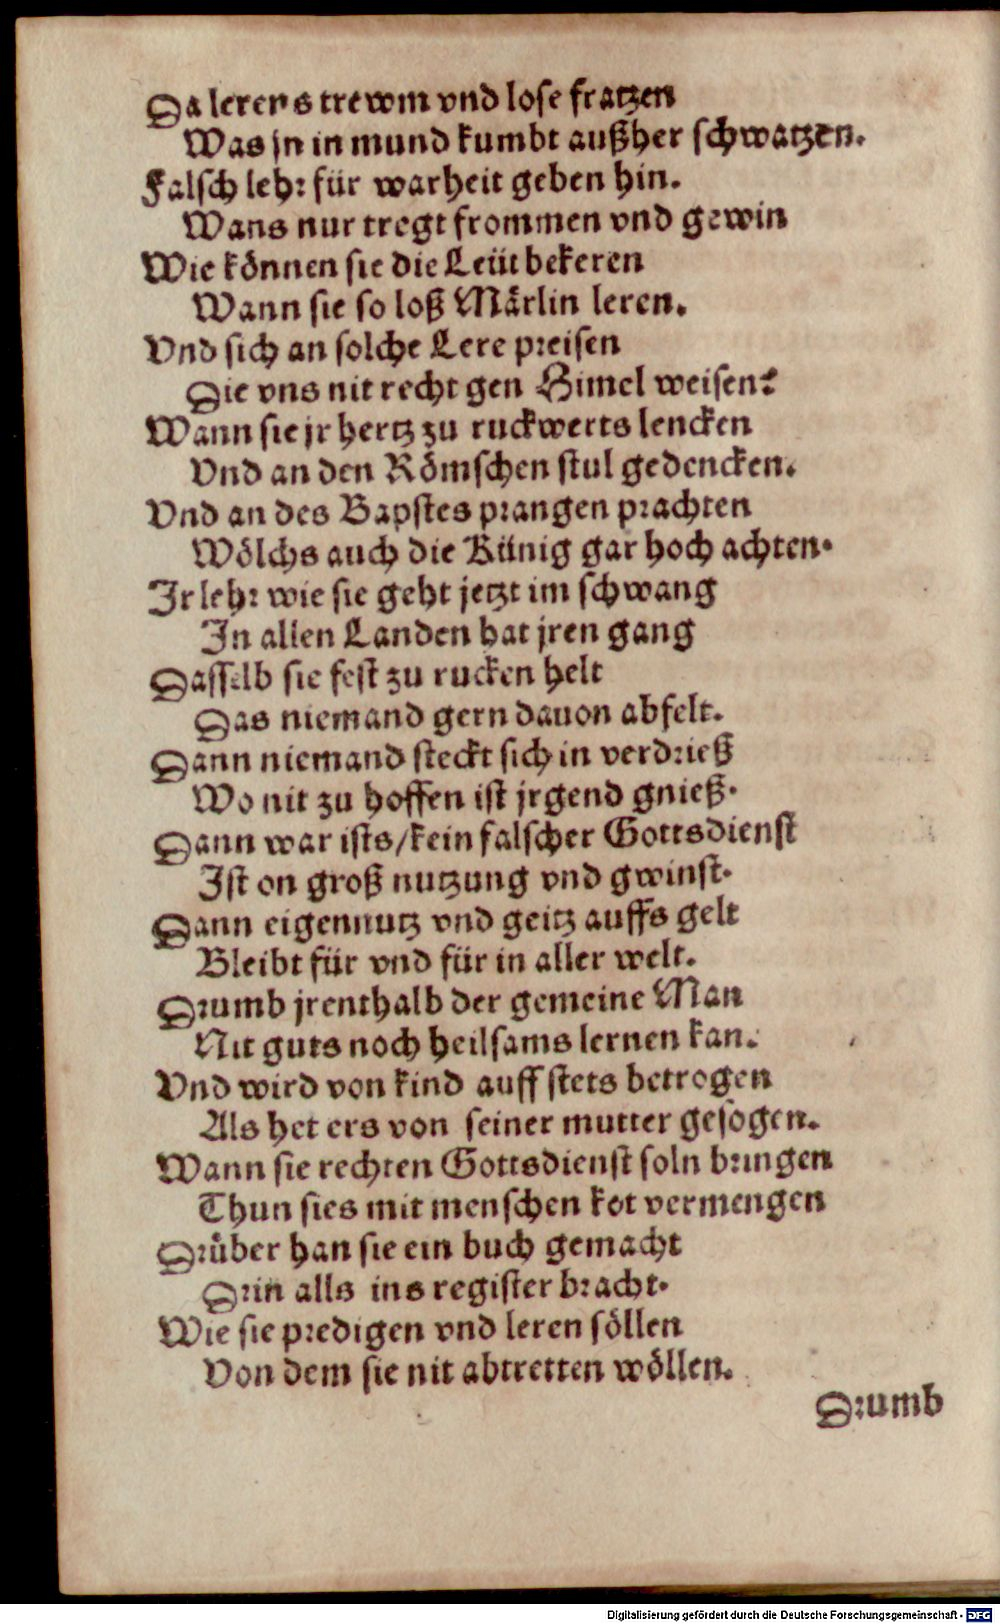 Da lerens trewm vnd lose fratzen
Was jn in mund kumbt außher schwatzen.
Falsch lehr für warheit geben hin.
Wans nur tregt frommen vnd gewin
Wie können sie die Leüt bekeren
Wann sie so loß Märlin leren.
Vnd sich an solche Lere preisen
Die vns nit recht gen Himel weisen?
Wann sie jr hertz zu ruckwerts lencken
Vnd an den Römschen stul gedencken.
Vnd an des Bapstes prangen prachten
Wölchs auch die Künig gar hoch achten.
Ir lehr wie sie geht jetzt im schwang
In allen Landen hat jren gang
Dasselb sie fest zu rucken helt
Das niemand gern dauon abfelt.
Dann niemand steckt sich in verdrieß
Wo nit zu hoffen ist jrgend gnieß.
Dann war ists/kein falscher Gottsdienst
Ist on groß nutzung vnd gwinst.
Dann eigennutz vnd geitz auffs gelt
Bleibt für vnd für in aller welt.
Drumb jrenthalb der gemeine Man
Nit guts noch heilsams lernen kan.
Vnd wird von kind auff stets betrogen
Als het ers von seiner mutter gesogen.
Wann sie rechten Gottsdienst soln bringen
Thun sies mit menschen kot vermengen
Drüber han sie ein buch gemacht
Drin alls ins register bracht.
Wie sie predigen vnd leren söllen
Von dem sie nit abtretten wöllen.
Drumb
Digitalisierung gefördert durch die Deutsche Forschungsgemeinschaft - DFG